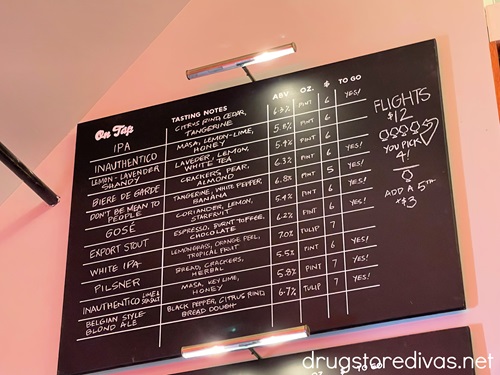 On Tap TASTING NOTES ABV OZ. $ TO GO
IPA CITRUS RIND, CEDAR, 6.3% PINT 6 YES!
TANGERINE
INAUTHENTICO MASA, LEMON-LIME, 5.8% PINT 6
HONEY
LEMON-LAVENDER LAVEDER, LEMON, 5.4% PINT 6
SHANDY WHITE TEA
BIERE DE GARDE CRACKERS, PEAR, 6.3% PINT 6 YES!
ALMOND
DON'T BE MEAN TO TANGERINE, WHITE PEPPER 6.8% PINT 5 YES!
PEOPLE BANANA
GOSE CORIANDER, LEMON, 5.4% PINT 6
STARFRUIT
EXPORT STOUT ESPRESSO, BURNT TOFFEE, 6.2% PINT 6 YES!
CHOCOLATE
WHITE IPA LEMONGRASS, ORANGE PEEL, 7.0% TULIP 7
TROPICAL FRUIT
PILSNER BREAD, CRACKERS, 5.5% PINT 6 YES!
HERBAL
INAUTHENTICO LIME & MASA, KEY LIME, 5.8% PINT 7 YES!
HONEY
BELGIAN STYLE- BLACK PEPPER, CITRUS RIND, 6.7% TULIP 7 YES!
BLOND ALE BREAD DOUGH
FLIGHTS
$12
YOU PICK
4!
ADD A 5TH
+$3
OZ. $ TO GO
drugstoredivas.net